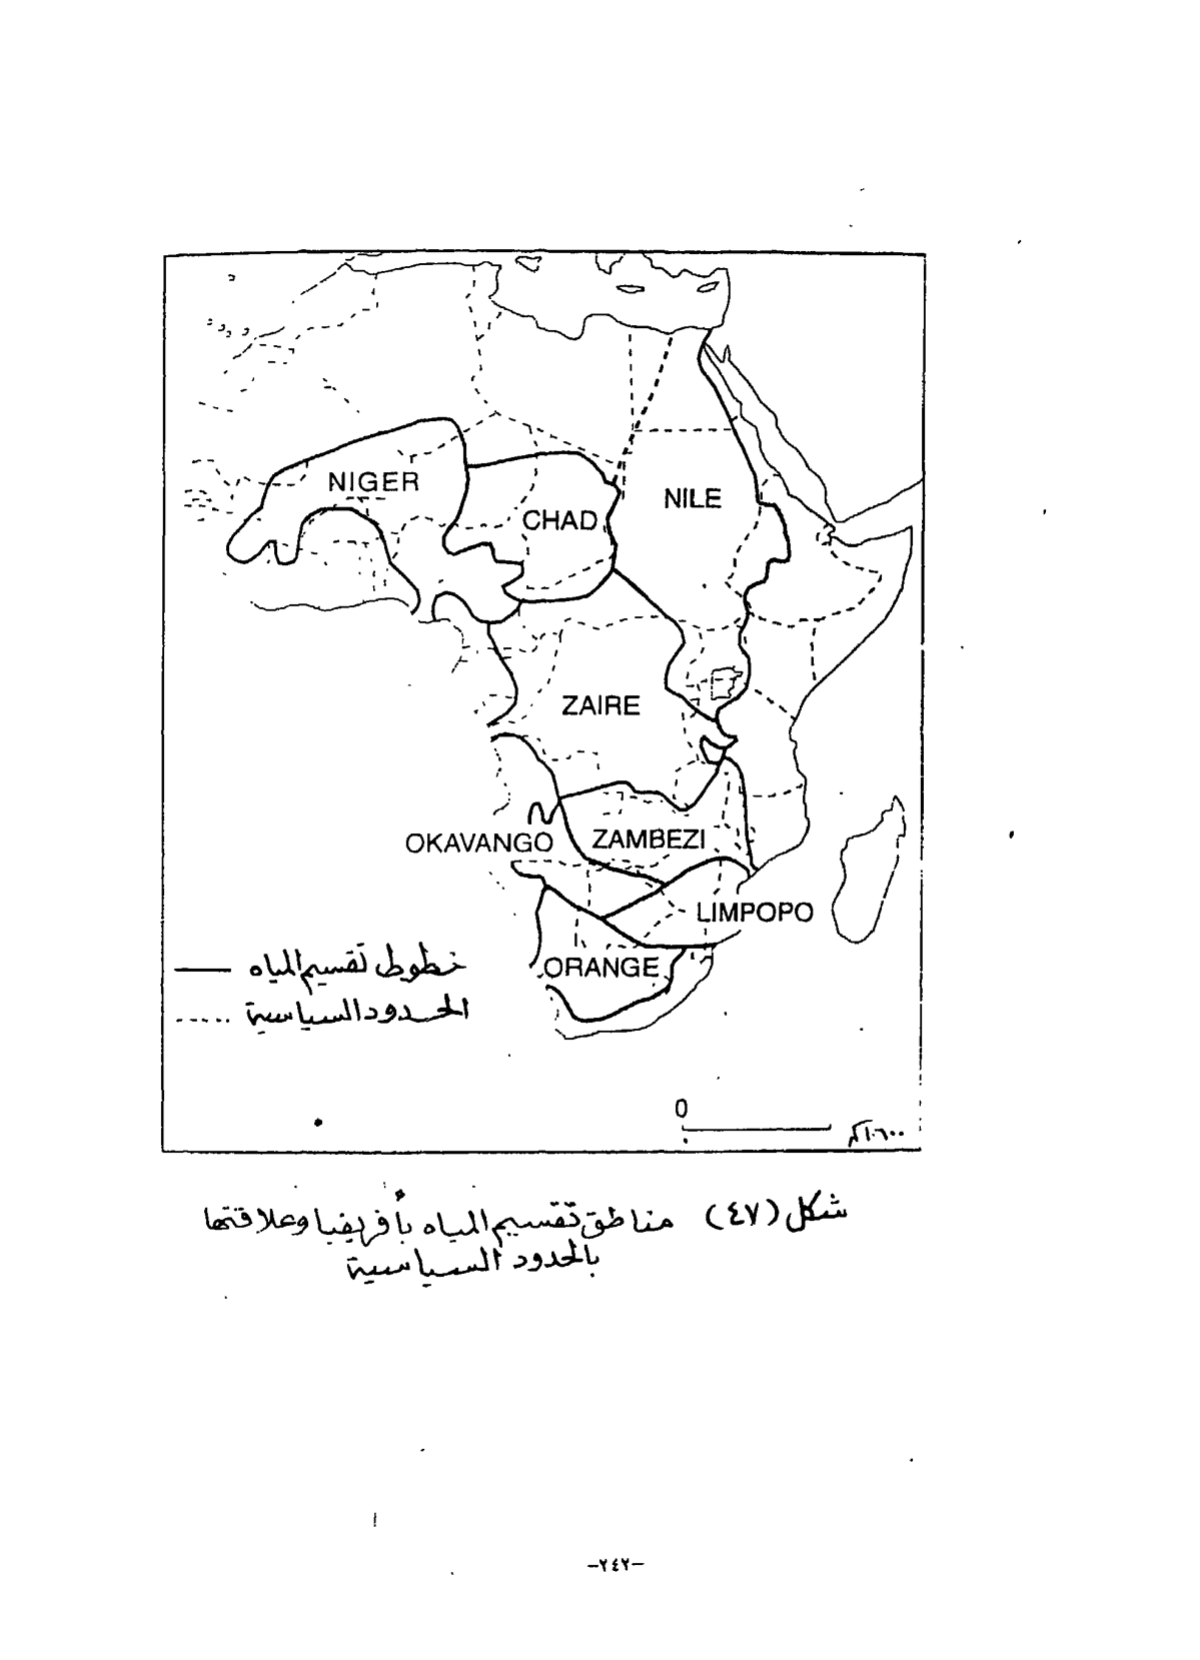 NIGER
CHAD
NILE
ZAIRE
OKAVANGO
ZAMBEZI
LIMPOPO
ORANGE
خطوط تقسيم المياه
الحدود السياسية
0
شكل (٤٧) مناطق تقسيم المياه بأفريقيا وعلاقتها
بالحدود السياسية
-٢٤٢-